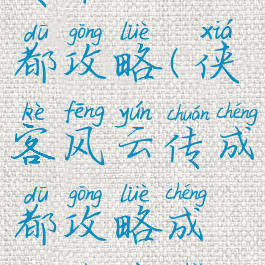 dū gōng lüè xiá
都攻略(侠
kè fēng yún chuán chéng
客风云传成
dū gōng lüè chéng
都攻略成